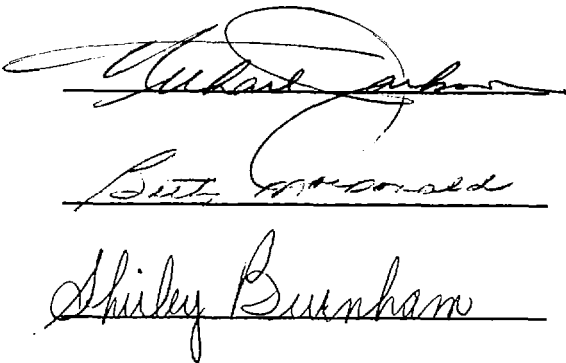 Michael Jackson
Betty McDonald
Shirley Burnham